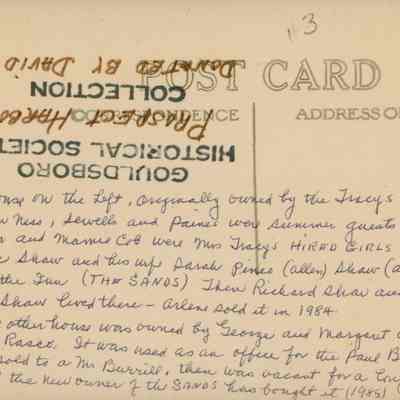 13
POST CARD
CORRESPONDENCE
ADDRESS O
GOULDSBORO
HISTORICAL SOCIET
COLLECTION
PROSPECT HARBO
DONATED BY DAVID
ouse on the left, originally owned by the Tracys
Ness, Sewells and Paines were summer guests
and Mamie Cob were Mrs Tracys HIRED GIRLS
Shaw and his wife Sarah Pinee (allen) Shaw (a
the Inn (THE SANDS) Then Richard Shaw an
Shaw lived there - Arlene sold it in 1984
other house was owned by George and Margaret
Rasco. It was used as an office for the Paul B
sold to a Mr Burrill, then was vacant for a lon
the new owner of the SANDS has bought it (1985)